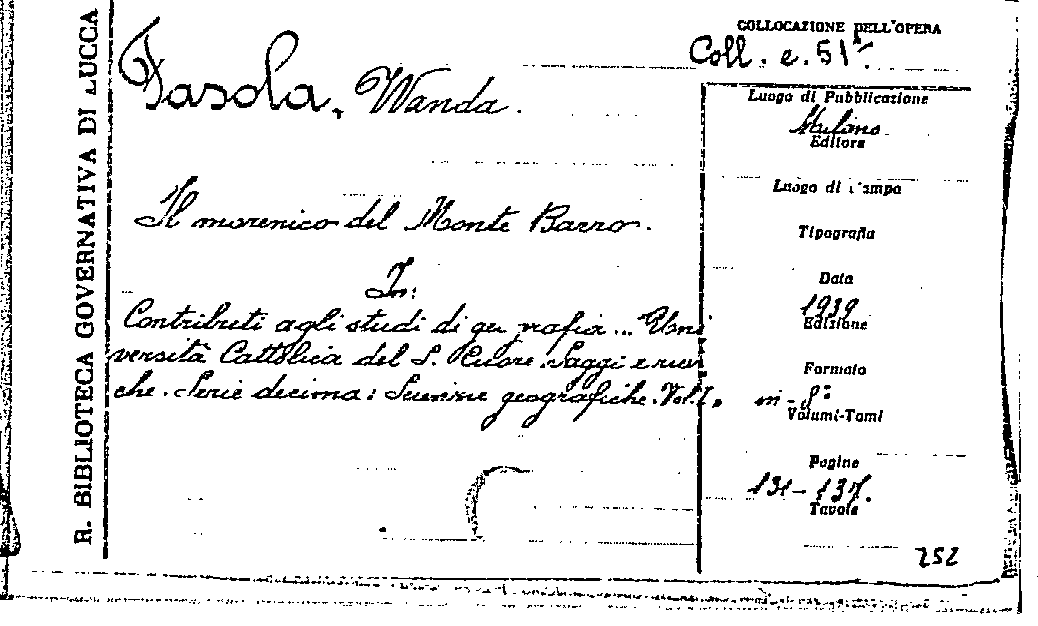 R. BIBLIOTECA GOVERNATIVA DI LUCCA
COLLOCAZIONE DELL'OPERA
Coll. e. 51
Fasola, Wanda.
Il morenico del Monte Barro.
In:
Contributi agli studi di geografia... Uni
versità Cattolica del S. Cuore. Saggi e ricer
che. Serie decima: Scienze geografiche. Vol. I.
Luogo di Pubblicazione
Milano
Editore
Luogo di Stampa
Tipografia
Data
1939
Edizione
Formato
in-8°
Volumi-Tomi
Pagine
131-137.
Tavole
252